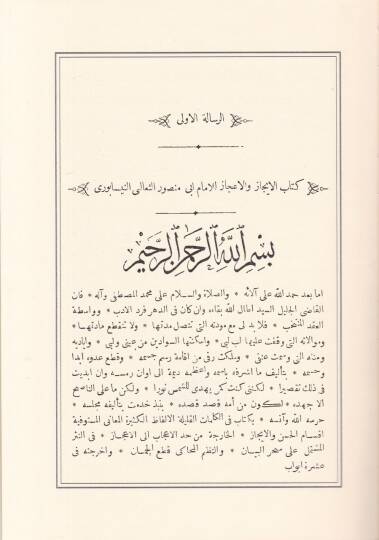 الرسالة الاولى
كتاب الايجاز والاعجاز للامام ابى منصور الثعالبى النيسابورى
بسم الله الرحمن الرحيم
اما بعد حمد الله على آلائه * والصلاة والسلام على محمد المصطفى وآله * فان
القاضى الجليل السيد اطال الله بقاءه وان كان فى الدهر فرد الادب * وواسطة
العقد المنتخب * فلا بد لى مع مودته التى تتصل مدتها * ولا تنقطع مادتها *
وموالاته التى وقفت عليها اب لبى * واسكنتها السوادين من عينى وقلبى * واياديه
ومننه التى وسمت عنقى * وملكت رقى من اقامة رسم خدمته * وقطع عدوه ابدا
وحسمه * بتأليف ما اشرفه باسمه واعظمه ديمة الى اوان رمسه * وان ابديت
فى ذلك تقصيرا * لكننى كنت كمن يهدى للشمس نورا * ولكن ما على الناصح
الا جهده * لكون من أمه قصد قصده * بنبذ خدمت بتأليفه مجلسه *
حرسه الله وآنسه * بكتاب فى الكلمات القليلة الالفاظ الكثيرة المعانى المستوفية
اقسام الحسن والايجاز * الخارجة من حد الاعجاب الى الاعجاز * فى النثر
المشتمل على سحر البيان * والنظم المحاكى قطع الجمان * واخرجته فى
عشرة ابواب